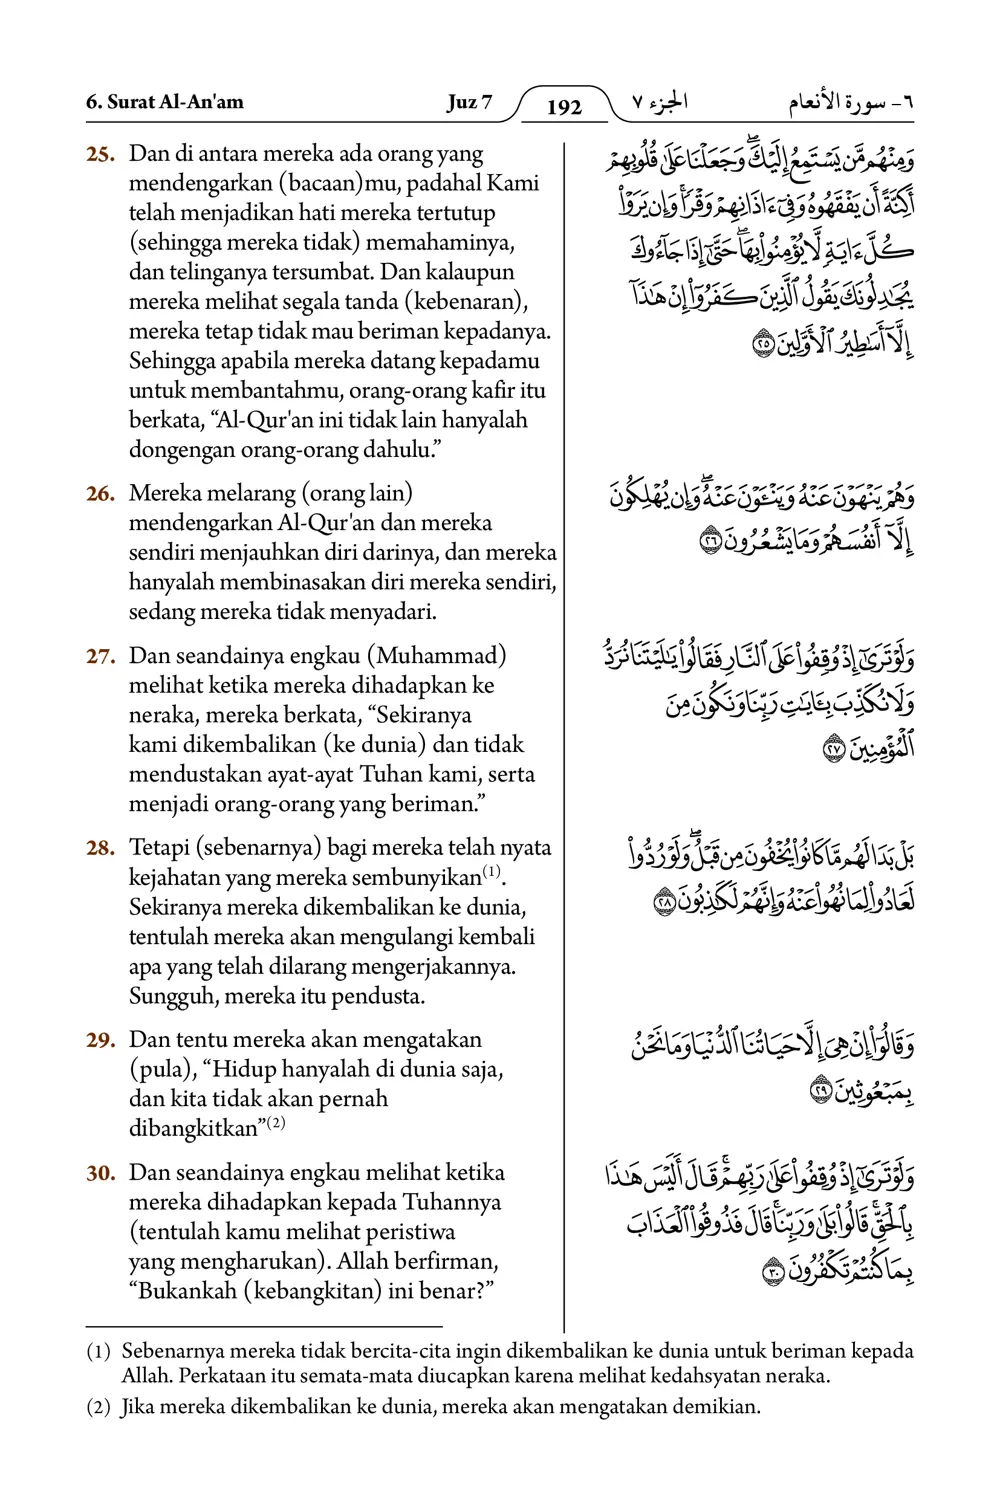 6. Surat Al-An'am
Juz 7
192
الجزء ٧
٦- سورة الأنعام
25. Dan di antara mereka ada orang yang
mendengarkan (bacaan)mu, padahal Kami
telah menjadikan hati mereka tertutup
(sehingga mereka tidak) memahaminya,
dan telinganya tersumbat. Dan kalaupun
mereka melihat segala tanda (kebenaran),
mereka tetap tidak mau beriman kepadanya.
Sehingga apabila mereka datang kepadamu
untuk membantahmu, orang-orang kafir itu
berkata, “Al-Qur'an ini tidak lain hanyalah
dongengan orang-orang dahulu.”
وَمِنْهُم مَّن يَسْتَمِعُ إِلَيْكَۖ وَجَعَلْنَا عَلَىٰ قُلُوبِهِمْ
أَكِنَّةً أَن يَفْقَهُوهُ وَفِىٓ ءَاذَانِهِمْ وَقْرًاۚ وَإِن يَرَوْا۟
كُلَّ ءَايَةٍ لَّا يُؤْمِنُوا۟ بِهَاۖ حَتَّىٰٓ إِذَا جَآءُوكَ
يُجَٰدِلُونَكَ يَقُولُ ٱلَّذِينَ كَفَرُوٓا۟ إِنْ هَٰذَآ
إِلَّآ أَسَٰطِيرُ ٱلْأَوَّلِينَ ٢٥
26. Mereka melarang (orang lain)
mendengarkan Al-Qur'an dan mereka
sendiri menjauhkan diri darinya, dan mereka
hanyalah membinasakan diri mereka sendiri,
sedang mereka tidak menyadari.
وَهُمْ يَنْهَوْنَ عَنْهُ وَيَنْـَٔوْنَ عَنْهُۖ وَإِن يُهْلِكُونَ
إِلَّآ أَنفُسَهُمْ وَمَا يَشْعُرُونَ ٢٦
27. Dan seandainya engkau (Muhammad)
melihat ketika mereka dihadapkan ke
neraka, mereka berkata, “Sekiranya
kami dikembalikan (ke dunia) dan tidak
mendustakan ayat-ayat Tuhan kami, serta
menjadi orang-orang yang beriman.”
وَلَوْ تَرَىٰٓ إِذْ وُقِفُوا۟ عَلَى ٱلنَّارِ فَقَالُوا۟ يَٰلَيْتَنَا نُرَدُّ
وَلَا نُكَذِّبَ بِـَٔايَٰتِ رَبِّنَا وَنَكُونَ مِنَ
ٱلْمُؤْمِنِينَ ٢٧
28. Tetapi (sebenarnya) bagi mereka telah nyata
kejahatan yang mereka sembunyikan(1).
Sekiranya mereka dikembalikan ke dunia,
tentulah mereka akan mengulangi kembali
apa yang telah dilarang mengerjakannya.
Sungguh, mereka itu pendusta.
بَلْ بَدَا لَهُم مَّا كَانُوا۟ يُخْفُونَ مِن قَبْلُۖ وَلَوْ رُدُّوا۟
لَعَادُوا۟ لِمَا نُهُوا۟ عَنْهُ وَإِنَّهُمْ لَكَٰذِبُونَ ٢٨
29. Dan tentu mereka akan mengatakan
(pula), “Hidup hanyalah di dunia saja,
dan kita tidak akan pernah
dibangkitkan”(2)
وَقَالُوٓا۟ إِنْ هِىَ إِلَّا حَيَاتُنَا ٱلدُّنْيَا وَمَا نَحْنُ
بِمَبْعُوثِينَ ٢٩
30. Dan seandainya engkau melihat ketika
mereka dihadapkan kepada Tuhannya
(tentulah kamu melihat peristiwa
yang mengharukan). Allah berfirman,
“Bukankah (kebangkitan) ini benar?”
وَلَوْ تَرَىٰٓ إِذْ وُقِفُوا۟ عَلَىٰ رَبِّهِمْۚ قَالَ أَلَيْسَ هَٰذَا
بِٱلْحَقِّۚ قَالُوا۟ بَلَىٰ وَرَبِّنَاۚ قَالَ فَذُوقُوا۟ ٱلْعَذَابَ
بِمَا كُنتُمْ تَكْفُرُونَ ٣٠
(1) Sebenarnya mereka tidak bercita-cita ingin dikembalikan ke dunia untuk beriman kepada
Allah. Perkataan itu semata-mata diucapkan karena melihat kedahsyatan neraka.
(2) Jika mereka dikembalikan ke dunia, mereka akan mengatakan demikian.